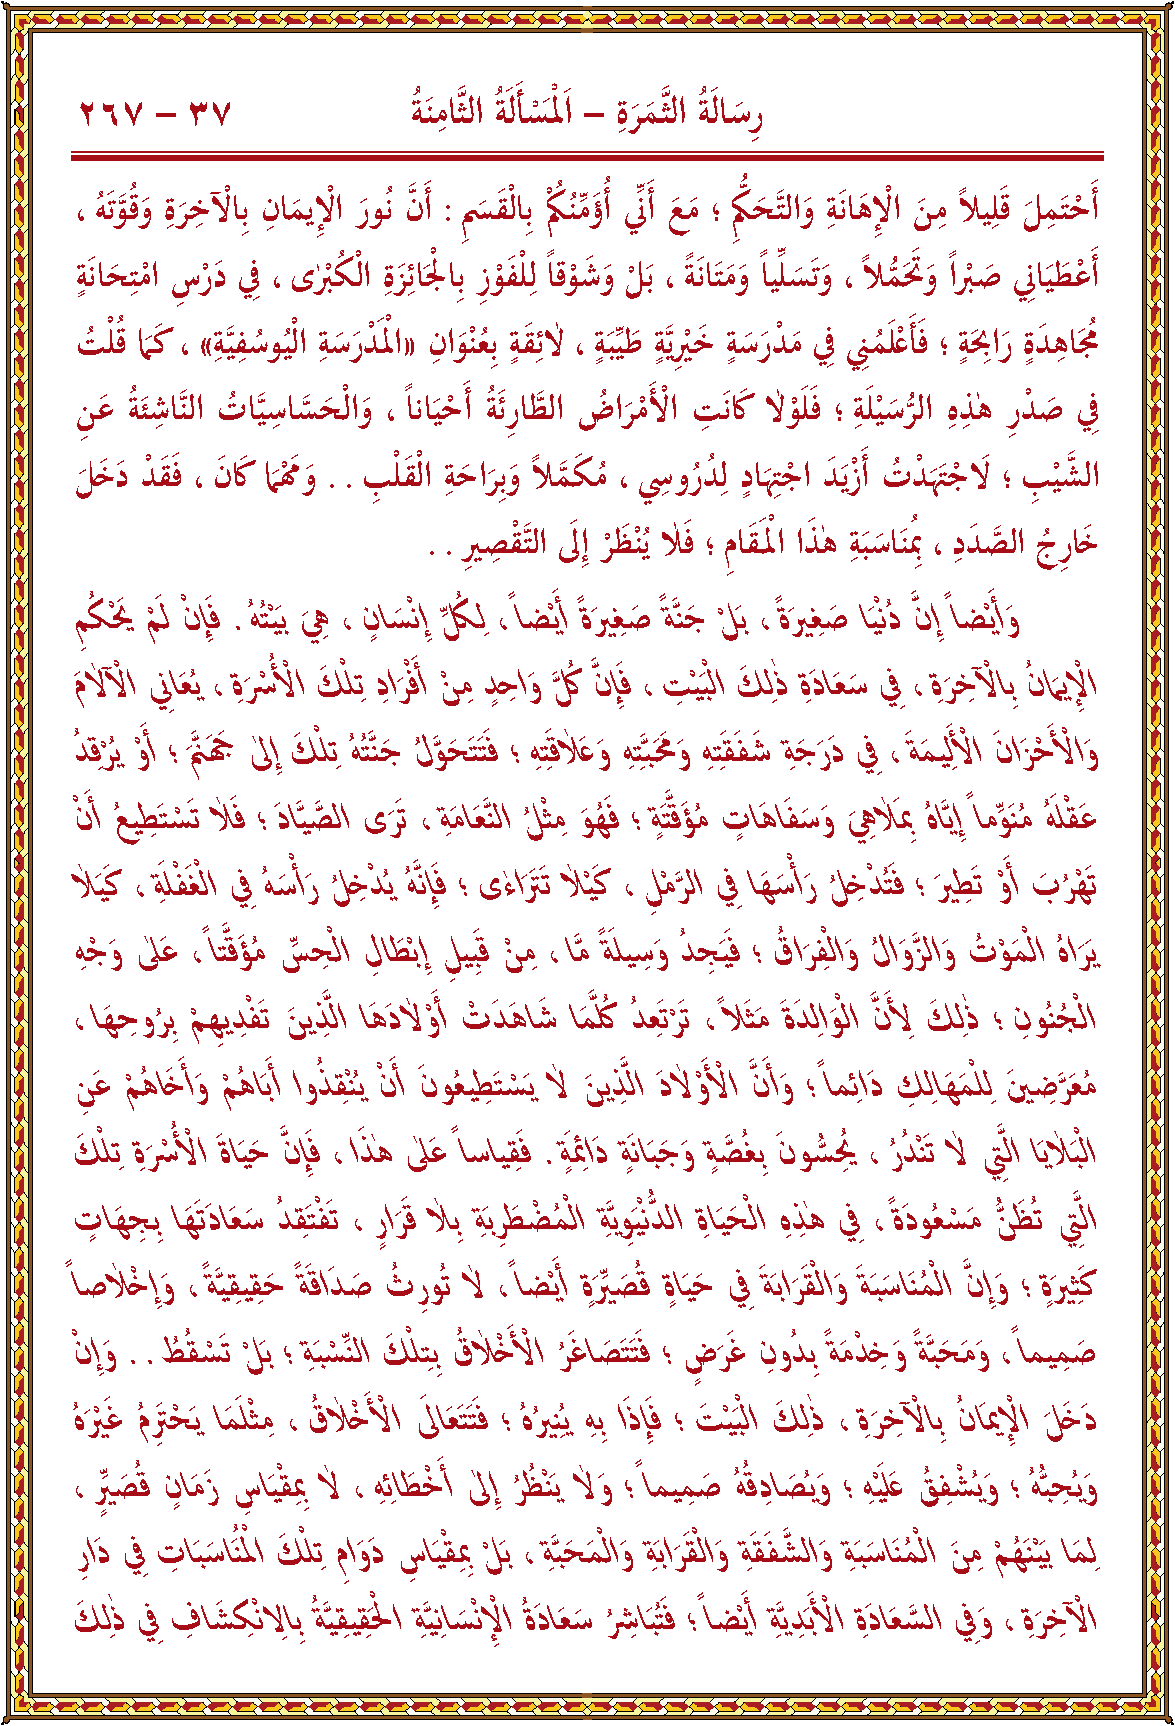 رِسَالَةُ الثَّمَرَةِ – اَلْمَسْأَلَةُ الثَّامِنَةُ ٣٧ – ٢٦٧
أَحْتَمِلَ قَلِيلاً مِنَ الْإِهَانَةِ وَالتَّحَكُّمِ ؛ مَعَ أَنِّي أُؤَمِّنُكُمْ بِالْقَسَمِ : أَنَّ نُورَ الْإِيمَانِ بِالْآخِرَةِ وَقُوَّتَهُ ،
أَعْطَيَانِي صَبْراً وَتَحَمُّلاً ، وَتَسَلِّياً وَمَتَانَةً ، بَلْ وَشَوْقاً لِلْفَوْزِ بِالْجَائِزَةِ الْكُبْرٰى ، فِي دَرْسِ امْتِحَانَةٍ
مُجَاهِدَةٍ رَابِحَةٍ ؛ فَأَعْلَمُنِي فِي مَدْرَسَةٍ خَيْرِيَّةٍ طَيِّبَةٍ ، لَائِقَةٍ بِعُنْوَانِ «الْمَدْرَسَةِ الْيُوسُفِيَّةِ» ، كَمَا قُلْتُ
فِي صَدْرِ هٰذِهِ الرُّسَيْلَةِ ؛ فَلَوْلَا كَانَتِ الْأَمْرَاضُ الطَّارِئَةُ أَحْيَاناً ، وَالْحَسَّاسِيَّاتُ النَّاشِئَةُ عَنِ
الشَّيْبِ ؛ لَاجْتَهَدْتُ أَزْيَدَ اجْتِهَادٍ لِدُرُوسِي ، مُكَمَّلاً وَبِرَاحَةِ الْقَلْبِ . . وَمَهْمَا كَانَ ، فَقَدْ دَخَلَ
خَارِجُ الصَّدَدِ ، بِمُنَاسَبَةِ هٰذَا الْمَقَامِ ؛ فَلَا يُنْظَرْ إِلَى التَّقْصِيرِ . .
وَأَيْضاً إِنَّ دُنْيَا صَغِيرَةً ، بَلْ جَنَّةً صَغِيرَةً أَيْضاً ، لِكُلِّ إِنْسَانٍ ، هِيَ بَيْتُهُ . فَإِنْ لَمْ يَحْكُمِ
الْإِيمَانُ بِالْآخِرَةِ ، فِي سَعَادَةِ ذٰلِكَ الْبَيْتِ ، فَإِنَّ كُلَّ وَاحِدٍ مِنْ أَفْرَادِ تِلْكَ الْأُسْرَةِ ، يُعَانِي الْآلَامَ
وَالْأَحْزَانَ الْأَلِيمَةَ ، فِي دَرَجَةِ شَفَقَتِهِ وَمَحَبَّتِهِ وَعَلَاقَتِهِ ؛ فَتَتَحَوَّلُ جَنَّتُهُ تِلْكَ إِلٰى جَهَنَّمَ ؛ أَوْ يُرْقِدُ
عَقْلَهُ مُنَوِّماً إِيَّاهُ بِمَلَاهِيَ وَسَفَاهَاتٍ مُؤَقَّتَةٍ ؛ فَهُوَ مِثْلُ النَّعَامَةِ ، تَرَى الصَّيَّادَ ؛ فَلَا تَسْتَطِيعُ أَنْ
تَهْرُبَ أَوْ تَطِيرَ ؛ فَتُدْخِلُ رَأْسَهَا فِي الرَّمْلِ ، كَيْلَا تَتَرَاءٰى ؛ فَإِنَّهُ يُدْخِلُ رَأْسَهُ فِي الْغَفْلَةِ ، كَيَلَا
يَرَاهُ الْمَوْتُ وَالزَّوَالُ وَالْفِرَاقُ ؛ فَيَجِدُ وَسِيلَةً مَّا ، مِنْ قَبِيلِ إِبْطَالِ الْحِسِّ مُؤَقَّتاً ، عَلٰى وَجْهِ
الْجُنُونِ ؛ ذٰلِكَ لِأَنَّ الْوَالِدَةَ مَثَلاً ، تَرْتَعِدُ كُلَّمَا شَاهَدَتْ أَوْلَادَهَا الَّذِينَ تَفْدِيهِمْ بِرُوحِهَا ،
مُعَرَّضِينَ لِلْمَهَالِكِ دَائِماً ؛ وَأَنَّ الْأَوْلَادَ الَّذِينَ لَا يَسْتَطِيعُونَ أَنْ يُنْقِذُوا أَبَاهُمْ وَأَخَاهُمْ عَنِ
الْبَلَايَا الَّتِي لَا تَنْدُرُ ، يُحِسُّونَ بِغُصَّةٍ وَجَبَانَةٍ دَائِمَةٍ . فَقِيَاساً عَلٰى هٰذَا ، فَإِنَّ حَيَاةَ الْأُسْرَةِ تِلْكَ
الَّتِي تُظَنُّ مَسْعُودَةً ، فِي هٰذِهِ الْحَيَاةِ الدُّنْيَوِيَّةِ الْمُضْطَرِبَةِ بِلَا قَرَارٍ ، تَفْتَقِدُ سَعَادَتَهَا بِجِهَاتٍ
كَثِيرَةٍ ؛ وَإِنَّ الْمُنَاسَبَةَ وَالْقَرَابَةَ فِي حَيَاةٍ قُصَيِّرَةٍ أَيْضاً ، لَا تُورِثُ صَدَاقَةً حَقِيقِيَّةً ، وَإِخْلَاصاً
صَمِيماً ، وَمَحَبَّةً وَخِدْمَةً بِدُونِ غَرَضٍ ؛ فَتَتَصَاغَرُ الْأَخْلَاقُ بِتِلْكَ النِّسْبَةِ ؛ بَلْ تَسْقُطُ . . وَإِنْ
دَخَلَ الْإِيمَانُ بِالْآخِرَةِ ، ذٰلِكَ الْبَيْتَ ؛ فَإِذَا بِهِ يُنِيرُهُ ؛ فَتَتَعَالَى الْأَخْلَاقُ ، مِثْلَمَا يَحْتَرِمُ غَيْرَهُ
وَيُحِبُّهُ ؛ وَيُشْفِقُ عَلَيْهِ ؛ وَيُصَادِقُهُ صَمِيماً ؛ وَلَا يَنْظُرُ إِلٰى أَخْطَائِهِ ، لَا بِمِقْيَاسِ زَمَانٍ قُصَيِّرٍ ،
لِمَا بَيْنَهُمْ مِنَ الْمُنَاسَبَةِ وَالشَّفَقَةِ وَالْقَرَابَةِ وَالْمَحَبَّةِ ، بَلْ بِمِقْيَاسِ دَوَامِ تِلْكَ الْمُنَاسَبَاتِ فِي دَارِ
الْآخِرَةِ ، وَفِي السَّعَادَةِ الْأَبَدِيَّةِ أَيْضاً ؛ فَتُبَاشِرُ سَعَادَةُ الْإِنْسَانِيَّةِ الْحَقِيقِيَّةُ بِالِانْكِشَافِ فِي ذٰلِكَ